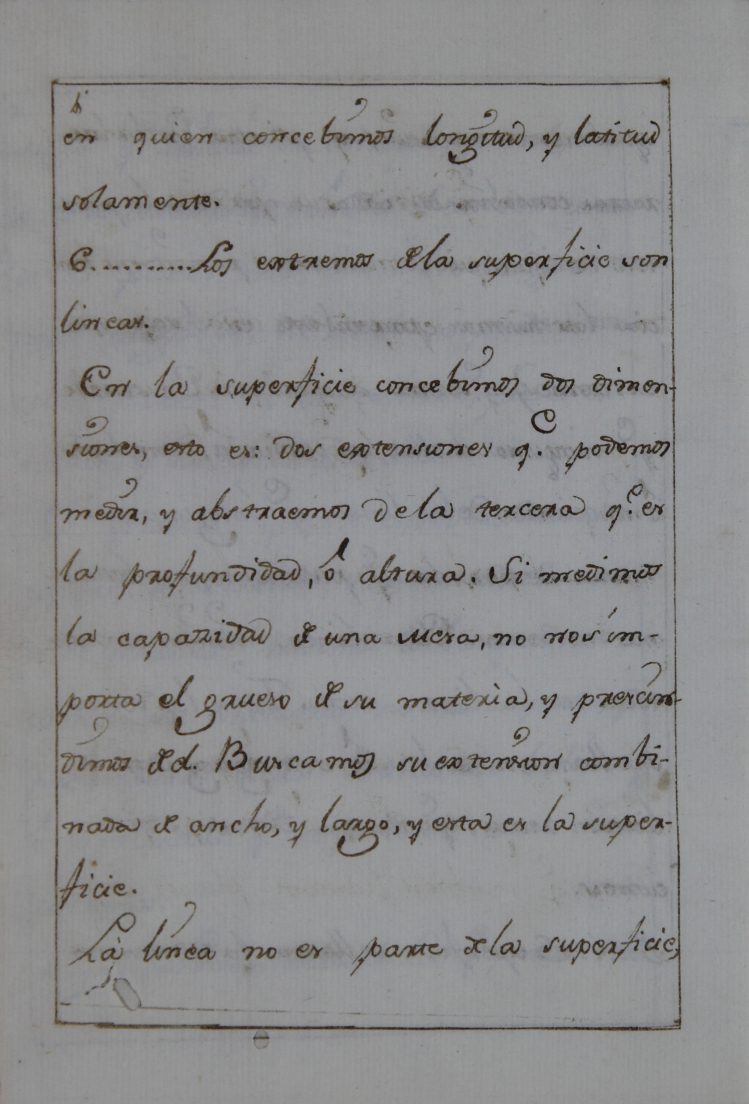 en quien concebimos longitud, y latitud
solamente.
6..........Los extremos de la superficie son
lineas.
En la superficie concebimos dos dimen-
siones, esto es: dos extensiones q.e podemos
medir, y abstraemos dela tercera q.e es
la profundidad, ó altura. Si medimos
la capazidad de una mesa, no nos im-
porta el grueso de su materia, y prescin-
dimos de el. Buscamos su extension combi-
nada de ancho, y largo, y esta es la super-
ficie.
La linea no es parte de la superficie,